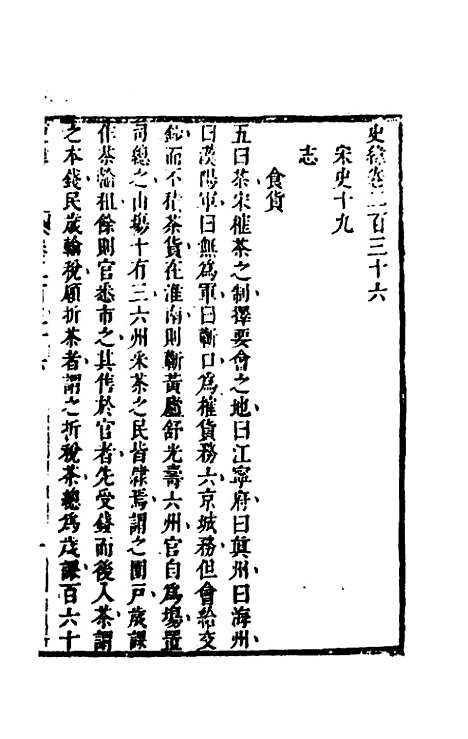 史緯卷二百三十六
宋史十九
志
食貨
五曰茶宋榷茶之制擇要會之地曰江寧府曰眞州曰海州
曰漢陽軍曰無為軍曰蘄口為榷貨務六京城務但會給交
鈔而不積茶貨在淮南則蘄黃廬舒光壽六州官自為場置
司總之山場十有三六州采茶之民皆隸焉謂之園戶歲課
作茶輸租餘則官悉市之其售於官者先受錢而後入茶謂
之本錢民歲輸稅願折茶者謂之折稅茶總為歲課百六十